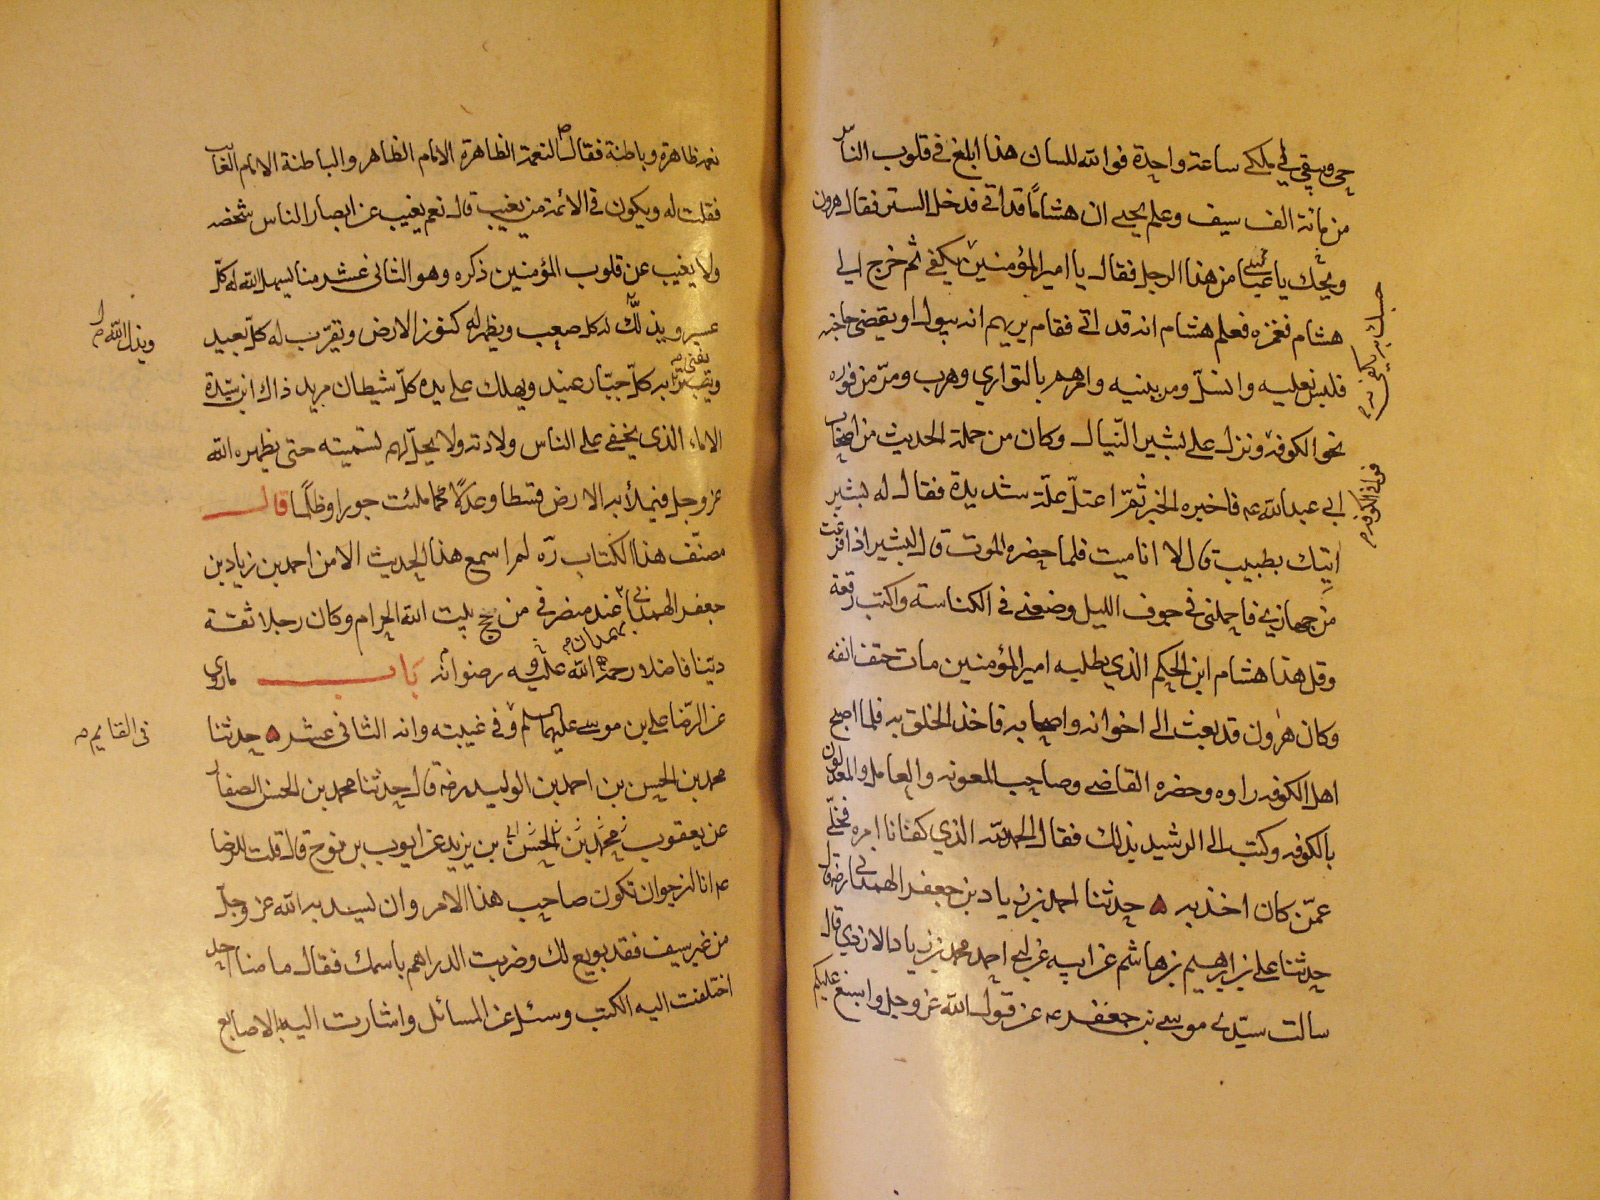 حي ويبقى لي ملكي ساعة واحدة فوالله للسان هذا ابلغ في قلوب الناس
من مائة الف سيف وعلم يحيى ان هشاما قد اتى فدخل الستر فقال هرون
ويحك يا عباسي من هذا الرجل فقال يا امير المؤمنين يكفي ثم خرج الى
هشام فغمزه فعلم هشام انه قد اتى فقام يريهم انه يبول او يقضي حاجة
فلبس نعليه وانسل ومر ببنيه وامرهم بالتواري وهرب ومر من فوره
نحو الكوفة ونزل على بشير النبال وكان من حملة الحديث من اصحاب
ابي عبدالله ع فاخبره الخبر ثم اعتل علة شديدة فقال له بشير
اتيك بطبيب قال لا انا ميت فلما حضره الموت قال لبشير اذا فرغت
من جهازي فاحملني في جوف الليل وضعني في الكناسة واكتب رقعة
وقل هذا هشام ابن الحكم الذي يطلبه امير المؤمنين مات حتف انفه
وكان هرون قد بعث الى اخوانه واصحابه فاخذ الخلق به فلما اصبح
اهل الكوفه راوه وحضره القاضي وصاحب المعونه والعامل والمعدلون
بالكوفه وكتب الى الرشيد بذلك فقال الحمد لله الذي كفانا امره فخلى
عمن كان اخذ به حدثنا احمد بن زياد بن جعفر الهمداني رضه قال
حدثنا علي بن ابرهيم بن هاشم عن ابيه عن ابي احمد محمد بن زياد الازدي قال
سالت سيدي موسى بن جعفر ع عن قول الله عز وجل واسبغ عليكم
نحو الكوفة م
نعمه ظاهرة وباطنة فقال ص النعمة الظاهرة الامام الظاهر والباطنة الامام الغايب
فقلت له ويكون في الائمة من يغيب قال نعم يغيب عن ابصار الناس شخصه
ولا يغيب عن قلوب المؤمنين ذكره وهو الثاني عشر منا يسهل الله له كل
عسير ويذلل له كل صعب ويظهر له كنوز الارض ويقرب له كل بعيد
ويذلل الله م
ويتبر به كل جبار عنيد ويهلك على يده كل شيطان مريد ذاك ابن سيدة
يفني م
الاماء الذي يخفى على الناس ولادته ولا يحل لهم تسميته حتى يظهره الله
عز وجل فيملأ به الارض قسطا وعدلا كما ملئت جورا وظلما قال
مصنف هذا الكتاب ره لم اسمع هذا الحديث الا من احمد بن زياد بن
جعفر الهمداني عند منصرفي من حج بيت الله الحرام وكان رجلا ثقة
بهمدان م
دينا فاضلا رحمة الله عليه ورضوانه باب ما روى
عن الرضا علي بن موسى عليهما السلم في غيبته وانه الثاني عشر حدثنا
في القايم م
محمد بن الحسن بن احمد بن الوليد رضه قال حدثنا محمد بن الحسن الصفار
عن يعقوب محمد بن الحسن بن يزيد عن ايوب بن نوح قال قلت للرضا
ع انا لنرجو ان تكون صاحب هذا الامر وان يسديه الله عز وجل
من غير سيف فقد بويع لك وضربت الدراهم باسمك فقال ما منا احد
اختلفت اليه الكتب وسئل عن المسائل واشارت اليه الاصابع